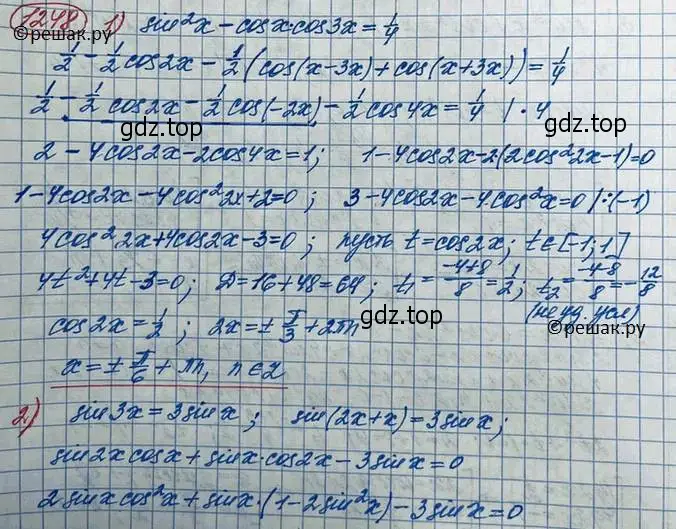 1248 1) sin²x - cosx·cos3x = 1/4
©решак.ру
1/2 - 1/2 cos2x - 1/2 (cos(x-3x) + cos(x+3x)) = 1/4
1/2 - 1/2 cos2x - 1/2 cos(-2x) - 1/2 cos4x = 1/4 | · 4
gdz.top gdz.top
2 - 4cos2x - 2cos4x = 1; 1 - 4cos2x - 2(2cos²2x - 1) = 0
1 - 4cos2x - 4cos²2x + 2 = 0; 3 - 4cos2x - 4·cos²x = 0 | :(-1)
©решак.ру
4cos²2x + 4cos2x - 3 = 0; пусть t = cos2x; t ∈ [-1; 1]
4t² + 4t - 3 = 0; D = 16 + 48 = 64; t₁ = (-4+8)/8 = 1/2; t₂ = (-4-8)/8 = -12/8
(не уд. усл)
cos2x = 1/2; 2x = ± π/3 + 2πn
gdz.top
©решак.ру
x = ± π/6 + πn, n ∈ Z
2.) sin3x = 3sinx; sin(2x+x) = 3sinx;
sin2x cosx + sinx·cos2x - 3sinx = 0
2sinxcos²x + sinx·(1 - 2sin²x) - 3sinx = 0